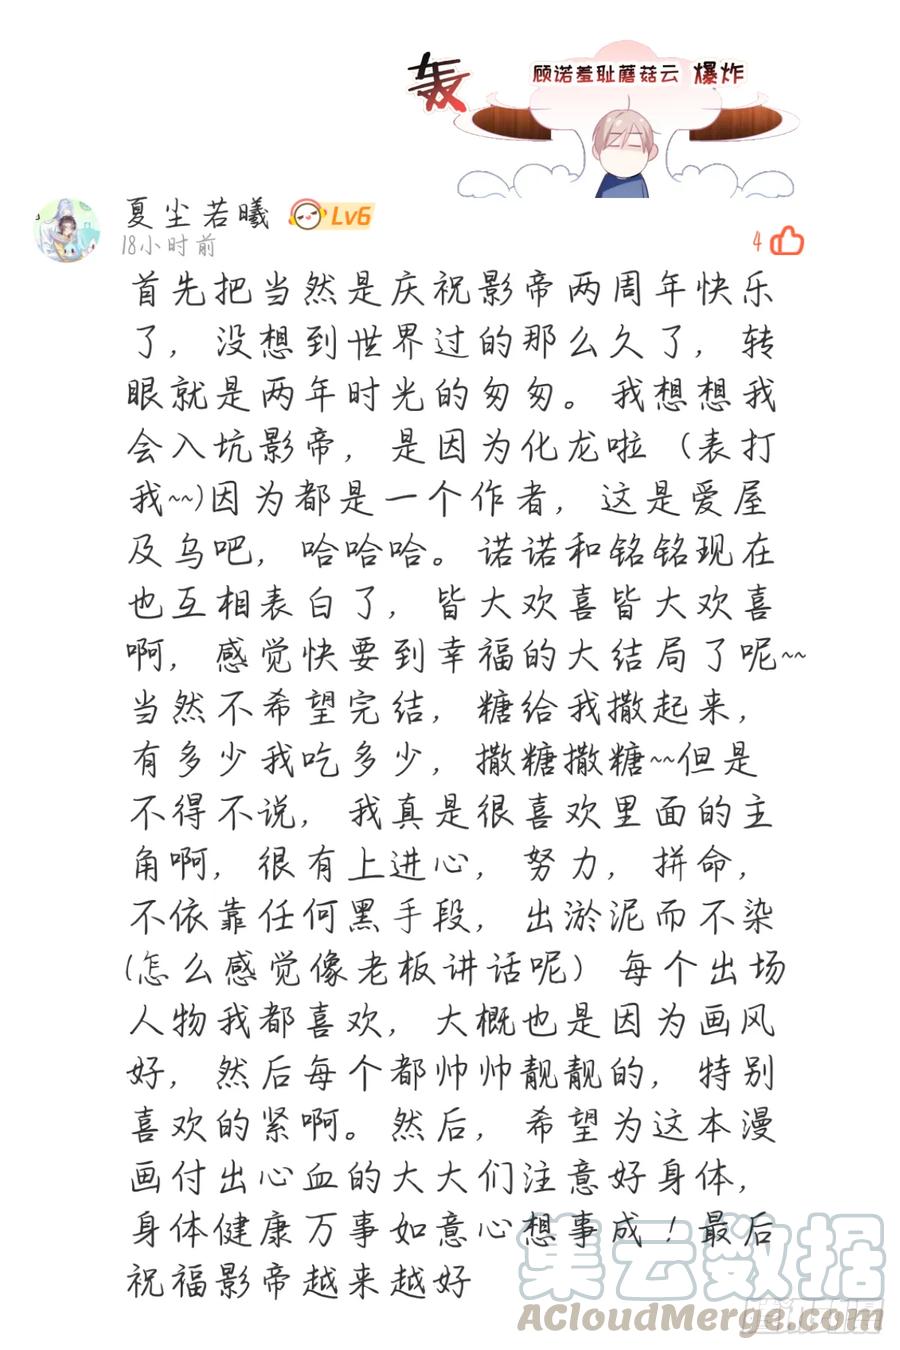 轰
顾诺羞耻蘑菇云 爆炸
夏尘若曦 Lv6
18小时前 4
首先把当然是庆祝影帝两周年快乐
了，没想到世界过的那么久了，转
眼就是两年时光的匆匆。我想想我
会入坑影帝，是因为化龙啦（表打
我~~)因为都是一个作者，这是爱屋
及乌吧，哈哈哈。诺诺和铭铭现在
也互相表白了，皆大欢喜皆大欢喜
啊，感觉快要到幸福的大结局了呢~~
当然不希望完结，糖给我撒起来，
有多少我吃多少，撒糖撒糖~~但是
不得不说，我真是很喜欢里面的主
角啊，很有上进心，努力，拼命，
不依靠任何黑手段，出淤泥而不染
(怎么感觉像老板讲话呢）每个出场
人物我都喜欢，大概也是因为画风
好，然后每个都帅帅靓靓的，特别
喜欢的紧啊。然后，希望为这本漫
画付出心血的大大们注意好身体，
身体健康万事如意心想事成！最后
祝福影帝越来越好
集云数据
ACloudMerge.com